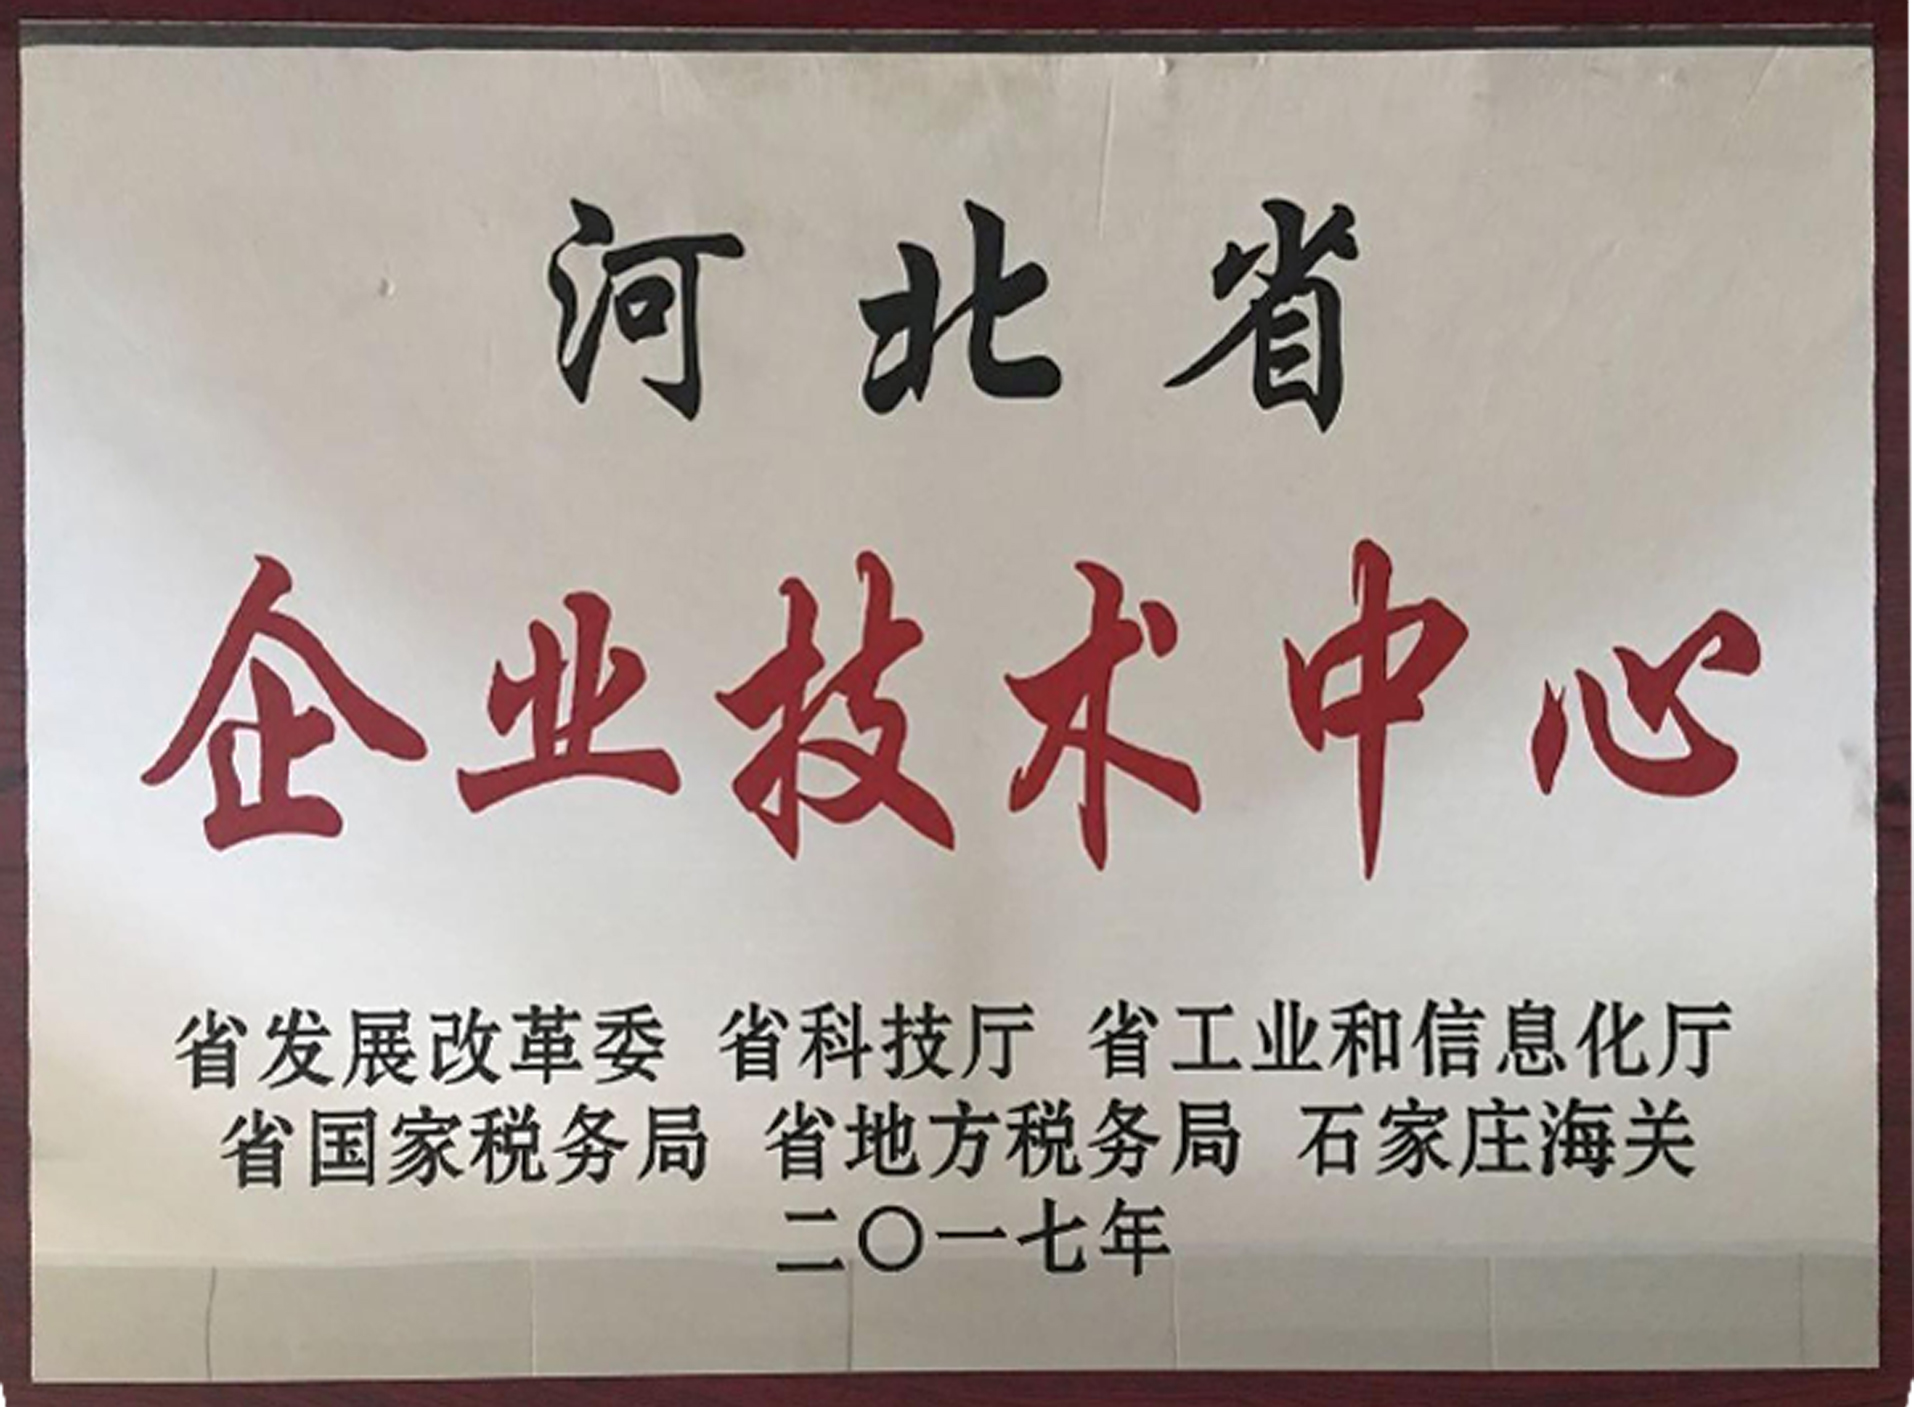 河北省
企业技术中心
省发展改革委 省科技厅 省工业和信息化厅
省国家税务局 省地方税务局 石家庄海关
二〇一七年